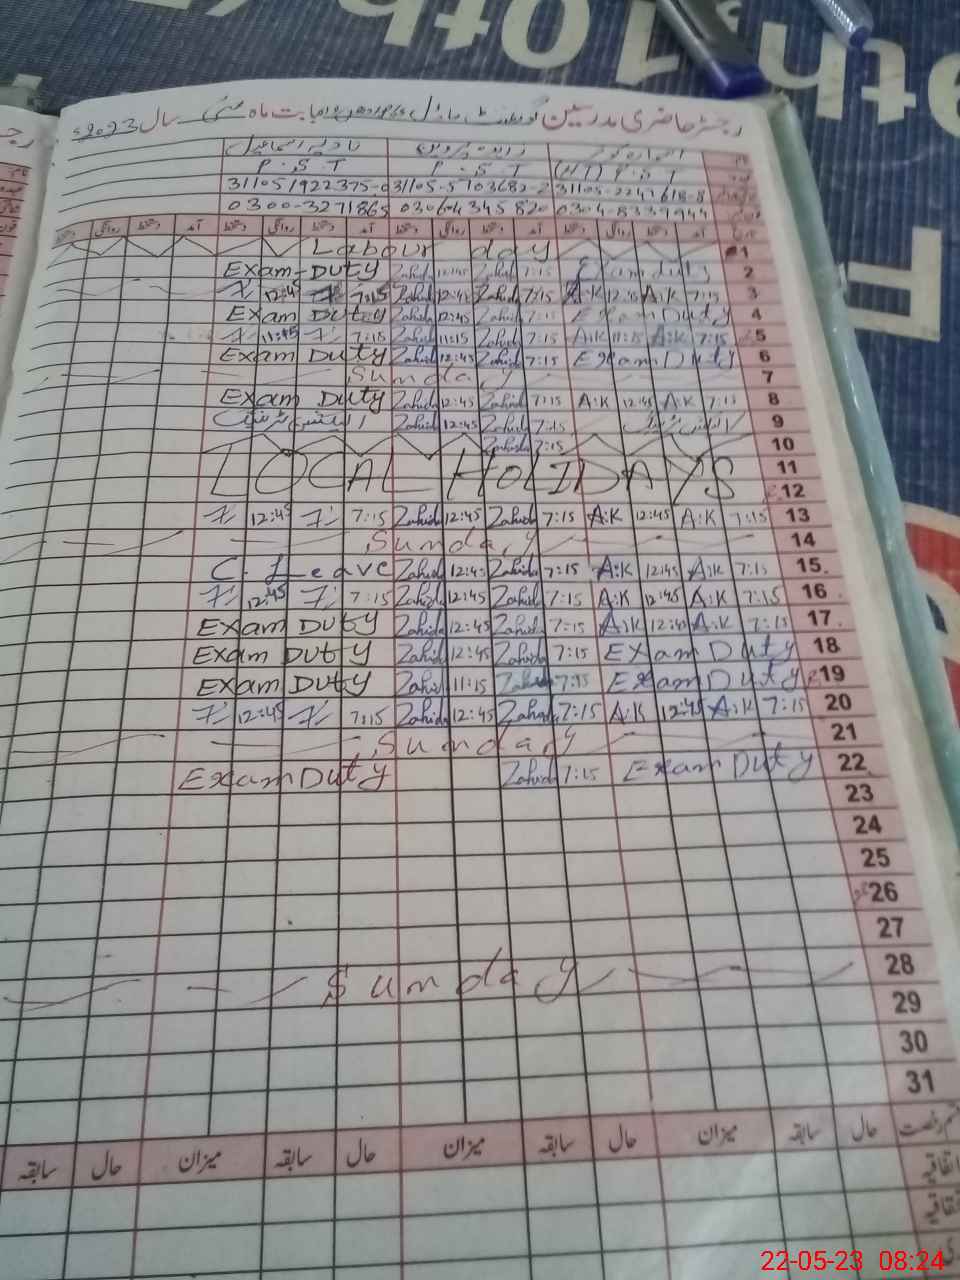 رجسٹر حاضری مدرسین گورنمنٹ ماڈل بابت ماہ مئی سال 2023ء
نادیہ اسماعیل زاہدہ پروین
P.S.T P.S.T (HT) P.S.T
31105-5703682-2
0300-3271865 0306-4345820 0304-8339944
آمد دستخط روانگی دستخط آمد دستخط روانگی دستخط آمد دستخط روانگی دستخط آمد دستخط روانگی دستخط
Labour day 1
Exam-DUTY Zahida 12:45 Zahida 7:15 Exam duty 2
12:45 7:15 Zahida 12:45 Zahida 7:15 A:K 12:45 A:K 7:15 3
Exam DUTY Zahida 12:45 Zahida 7:15 Exam Duty 4
11:15 7:15 Zahida 11:15 Zahida 7:15 A:K 11:15 A:K 7:15 5
Exam DUTY Zahida 12:45 Zahida 7:15 Exam Duty 6
Sunday 7
Exam DUTY Zahida 12:45 Zahida 7:15 A:K 12:45 A:K 7:15 8
الیکشن ٹریننگ Zahida 12:45 Zahida 7:15 الیکشن ٹریننگ 9
Zahida 7:15 10
LOCAL HOLIDAYS 11
12
12:45 7:15 Zahida 12:45 Zahida 7:15 A:K 12:45 A:K 7:15 13
Sunday 14
C. Leave Zahida 12:45 Zahida 7:15 A:K 12:45 A:K 7:15 15
12:45 7:15 Zahida 12:45 Zahida 7:15 A:K 12:45 A:K 7:15 16
Exam DUTY Zahida 12:45 Zahida 7:15 A:K 12:45 A:K 7:15 17
Exam DUTY Zahida 12:45 Zahida 7:15 Exam Duty 18
Exam DUTY Zahida 11:15 Zahida 7:15 Exam Duty 19
12:45 7:15 Zahida 12:45 Zahida 7:15 A:K 12:45 A:K 7:15 20
Sunday 21
Exam DUTY Zahida 7:15 Exam DUTY 22
23
24
25
26
27
Sunday 28
29
30
31
حال سابقہ میزان حال سابقہ میزان حال سابقہ میزان حال سابقہ
اتفاقیہ
22-05-23 08:24